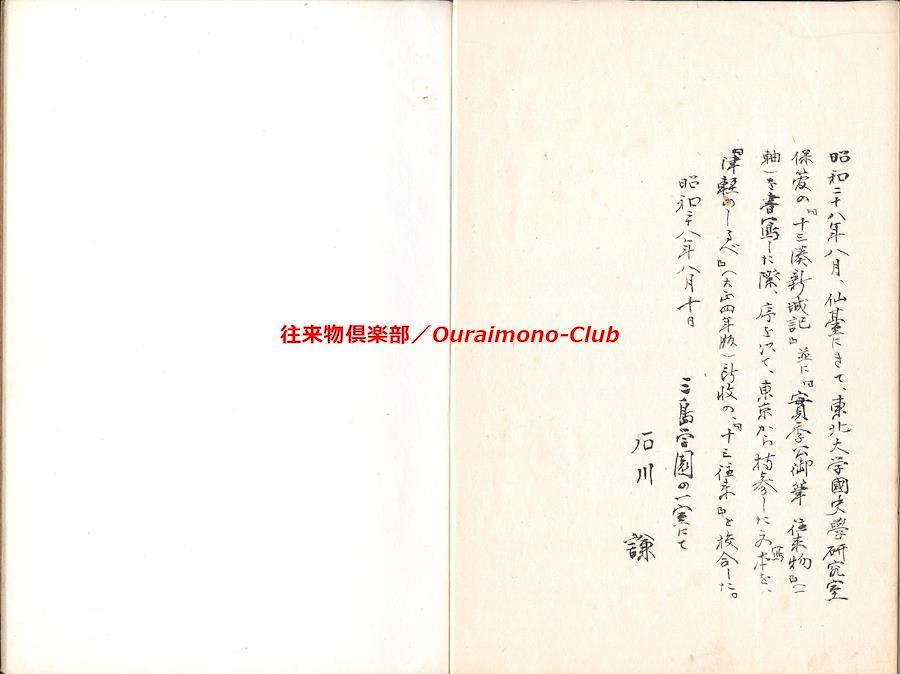 昭和二十八年八月、仙臺にきて、東北大学國史學研究室
保管の『十三湊新城記』並に『實季公御筆 往来物』(一
軸)を書写した際、序を以て、東京から持参した写本を、
『津軽のしるべ』(大正四年版)所收の、『十三往来』と校合した。
昭和二十八年八月十日
三島学園の一室にて
石川 謙
往来物倶楽部/Ouraimono-Club